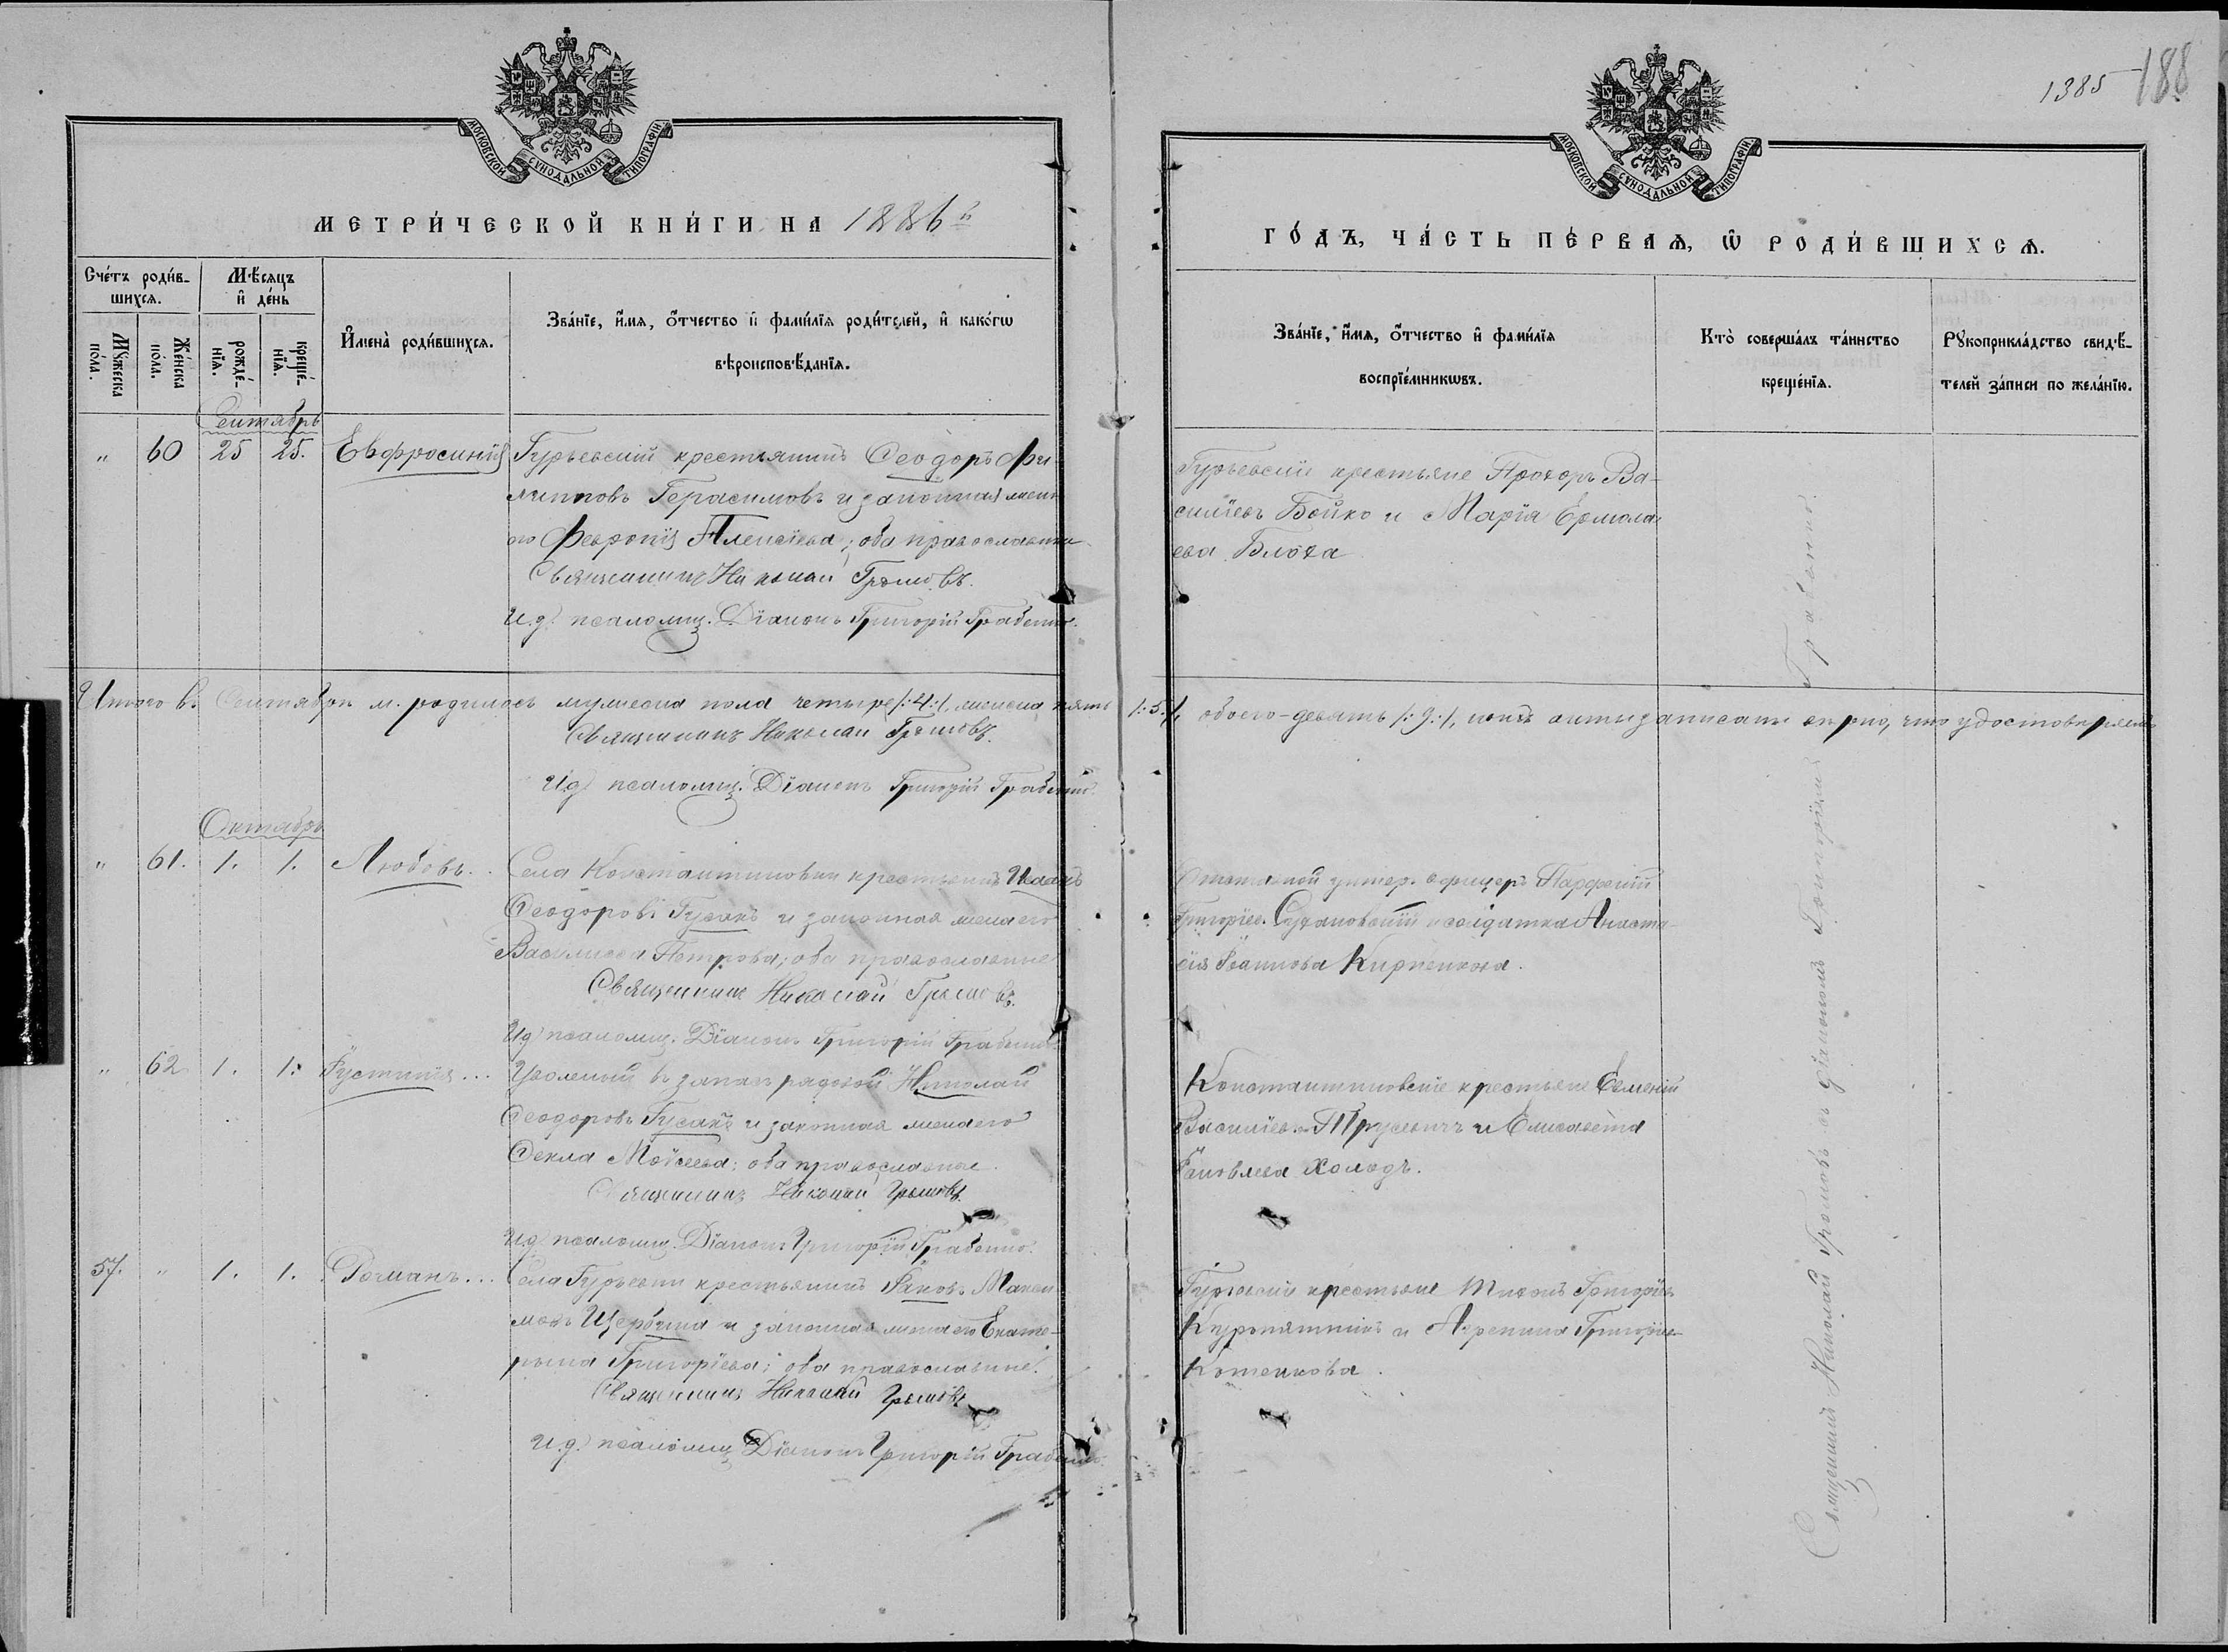 1385
188
МОСКОВСКОЙ СѴНОДАЛЬНОЙ ТИПОГРАФІИ
МОСКОВСКОЙ СѴНОДАЛЬНОЙ ТИПОГРАФІИ
МЕТРИ́ЧЕСКОЙ КНИ́ГИ НА 1886й
ГО́ДЪ, ЧА́СТЬ ПЕ́РВАѦ, Ѿ РОДИ́ВШИХСѦ.
Сче́тъ роди́в-
шихсѧ.
Мѣ́сѧцъ
и҆ де́нь
Мꙋ́жеска
по́ла.
Же́нска
по́ла.
рожде́-
нїѧ.
креще́-
нїѧ.
И҆мена̀ роди́вшихсѧ.
Зва́нїе, и҆́мѧ, о҆́тчество и҆ фами́лїѧ роди́телей, и҆ како́гѡ
вѣроисповѣ́данїѧ.
Зва́нїе, и҆́мѧ, о҆́тчество и҆ фами́лїѧ
воспрїе́мникѡвъ.
Кто̀ соверша́лъ та́инство
креще́нїѧ.
Рꙋкоприкла́дство свидѣ́-
телей за́писи по жела́нїю.
Сентябрь
" 60 25 25. Евфросинія
Гурьевскій крестьянинъ Ѳеодоръ Фи-
липповъ Герасимовъ и законная жена
его Февронія Алексіева; оба православные
Священникъ Николай Громовъ.
И.д. псаломщ. Діаконъ Григорій Грабенко.
Гурьевскіе крестьяне Прохоръ Ва-
силіевъ Бойко и Марія Ермола-
ева Блоха
Итого въ Сентябрѣ м. родилось мужеска пола четыре /:4:/, женска пять /:5:/, обоего-девять /:9:/, коихъ акты записаны вѣрно, что удостовѣряемъ
Священникъ Николай Громовъ.
И.д. псаломщ. Діаконъ Григорій Грабенко.
Октябрь
" 61. 1. 1. Любовь..
Села Константиновки крестьянинъ Исаакъ
Ѳеодоровъ Гусакъ и законная жена его
Василисса Петрова; оба православные
Священникъ Николай Громовъ.
И.д. псаломщ. Діаконъ Григорій Грабенко.
Отставной унтер. офицеръ Парѳеній
Григоріев. и солдатка Анаста-
сія Іоаннова Кирпенкова.
" 62 1. 1. Іустинія...
Уволеный въ запасъ рядовой Николай
Ѳеодоровъ Гусакъ и законная жена его
Ѳекла Моѵсеева; оба православные.
Священникъ Николай Громовъ.
И.д. псаломщ. Діаконъ Григорій Грабенко.
Константиновскіе крестьяне Евменій
Василіев. Трусевичъ и Елисавета
Іаковлева Холодъ.
57. " 1. 1. Романъ...
Села Гурьевки крестьянинъ Іаковъ Макси-
мовъ Щербина и законная жена его Екате-
рина Григоріева; оба православные.
Священникъ Николай Громовъ
И.д. псаломщ. Діаконъ Григорій Грабенко.
Гурьевскіе крестьяне Тихонъ Григоріев.
Куропятникъ и Агрепина Григоріе-
Котенкова.
Священникъ Николай Громовъ съ діакономъ Григоріемъ Грабенко.